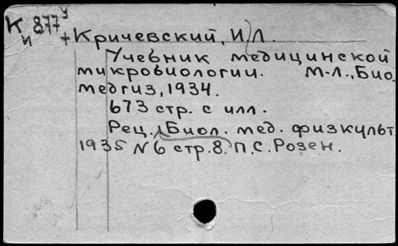 К 877 у
и + Кричевский, И. Л.
Учебник медицинской
микробиологии. М-Л., Био
медгиз, 1934.
673 стр. с илл.
Рец. Биол. мед. физкульт
1935 № 6 стр. 8. П. С. Розен.